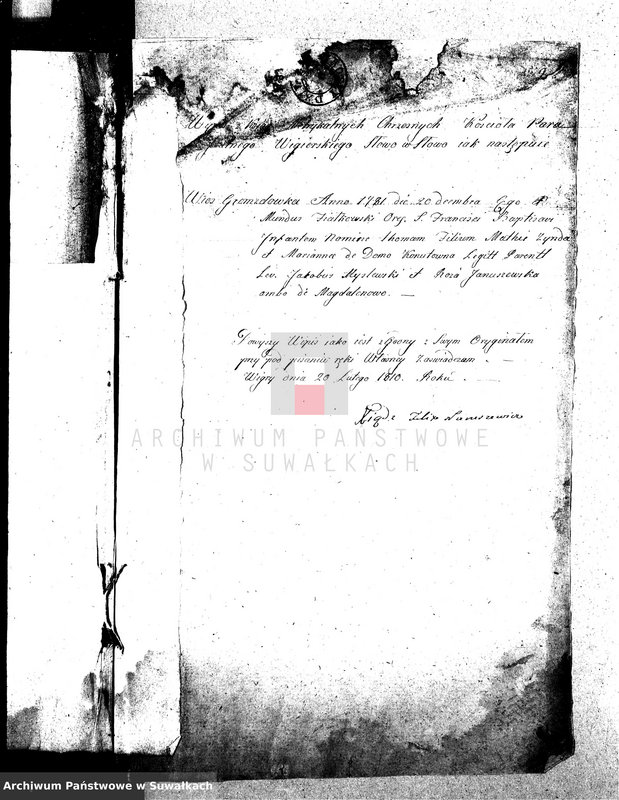 Chrzesnych Kościoła Para
Wigierskiego Słowo w Słowo iak następuie
Wies Gremzdowka Anno 1781 die 20 decembra Ego
Mundus Fialkowski Org. S. Francisci Baptisavi
Infantem Nomine Thomam Filium Mathie Zynda
et Marianna de Domo Konutowna Legitt Parentt
Lev. Jakobus Myslewski et Roza Januszewska
ambo de Magdalenowo. —
Powyszy Wipis jako iest zgodny z Swym Oryginałem
przy pod pisaniu ręki własney Zaswiadczam —
Wigry dnia 20 Lutego 1810. Roku —
Xiądz Felix
ARCHIWUM PAŃSTWOWE
W SUWAŁKACH
Archiwum Państwowe w Suwałkach